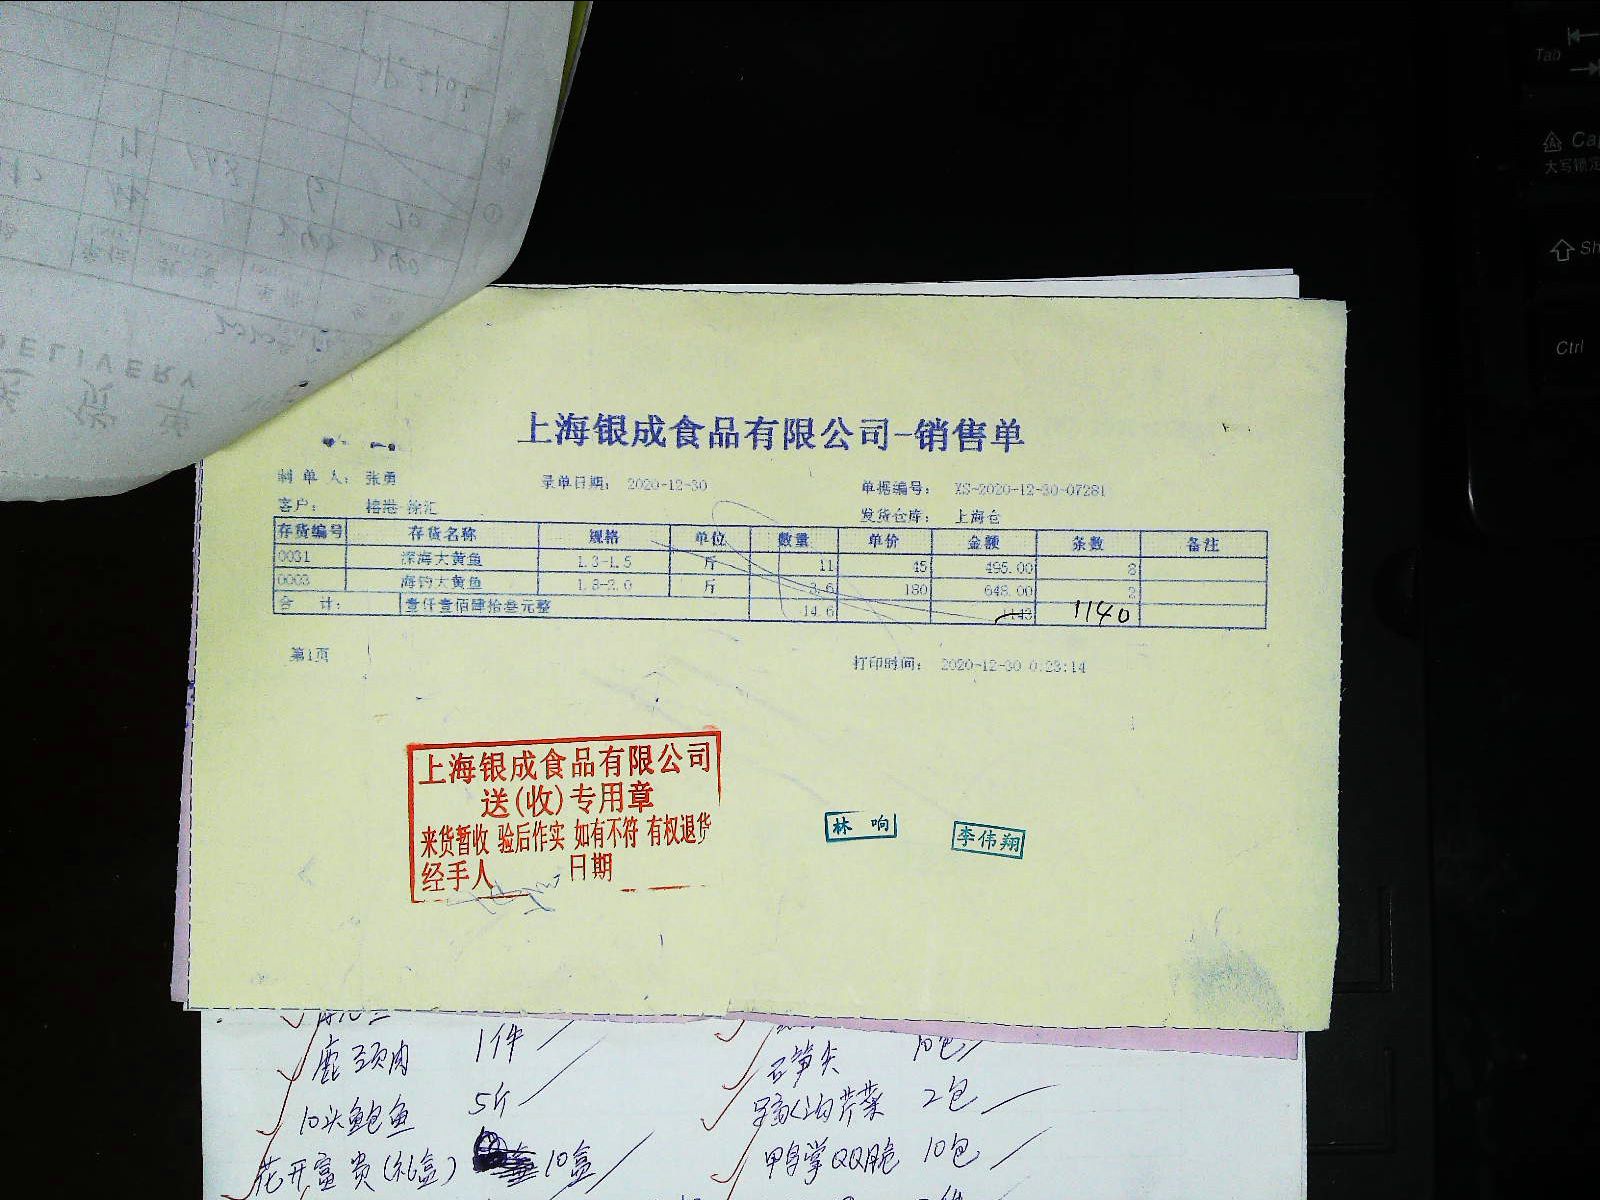 上海银成食品有限公司-销售单
制单人: 张勇 录单日期: 2020-12-30 单据编号: XS-2020-12-30-07281
客户: 榕港-徐汇 发货仓库: 上海仓
存货编号 存货名称 规格 单位 数量 单价 金额 条数 备注
0031 深海大黄鱼 1.3-1.5 斤 11 45 495.00 8
0003 海钓大黄鱼 1.8-2.0 斤 3.6 180 648.00 2
合计: 壹仟壹佰肆拾叁元整 14.6 1143 1140
第1页 打印时间: 2020-12-30 0:23:14
上海银成食品有限公司
送(收)专用章
来货暂收 验后作实 如有不符 有权退货
经手人 日期
林响
李伟翔
鹿颈肉 1件
10头鲍鱼 5斤
花开富贵(礼盒) 10盒
石笋尖 10包
芹菜 2包
甲鱼掌QQ脆 10包
Tab
Cap
大写锁定
Sh
Ctrl